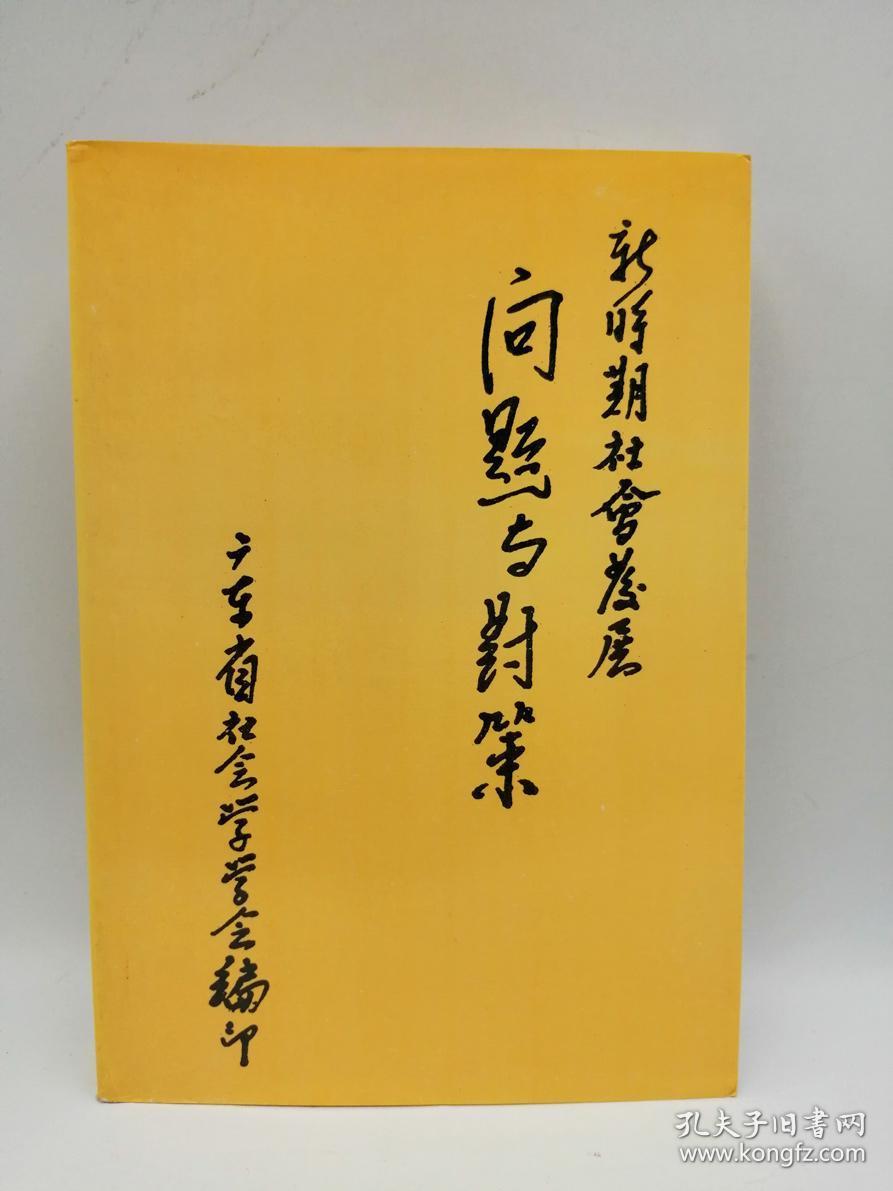 新時期社會發展
问题与對策
广东省社会学学会編印
孔夫子旧書网
www.kongfz.com